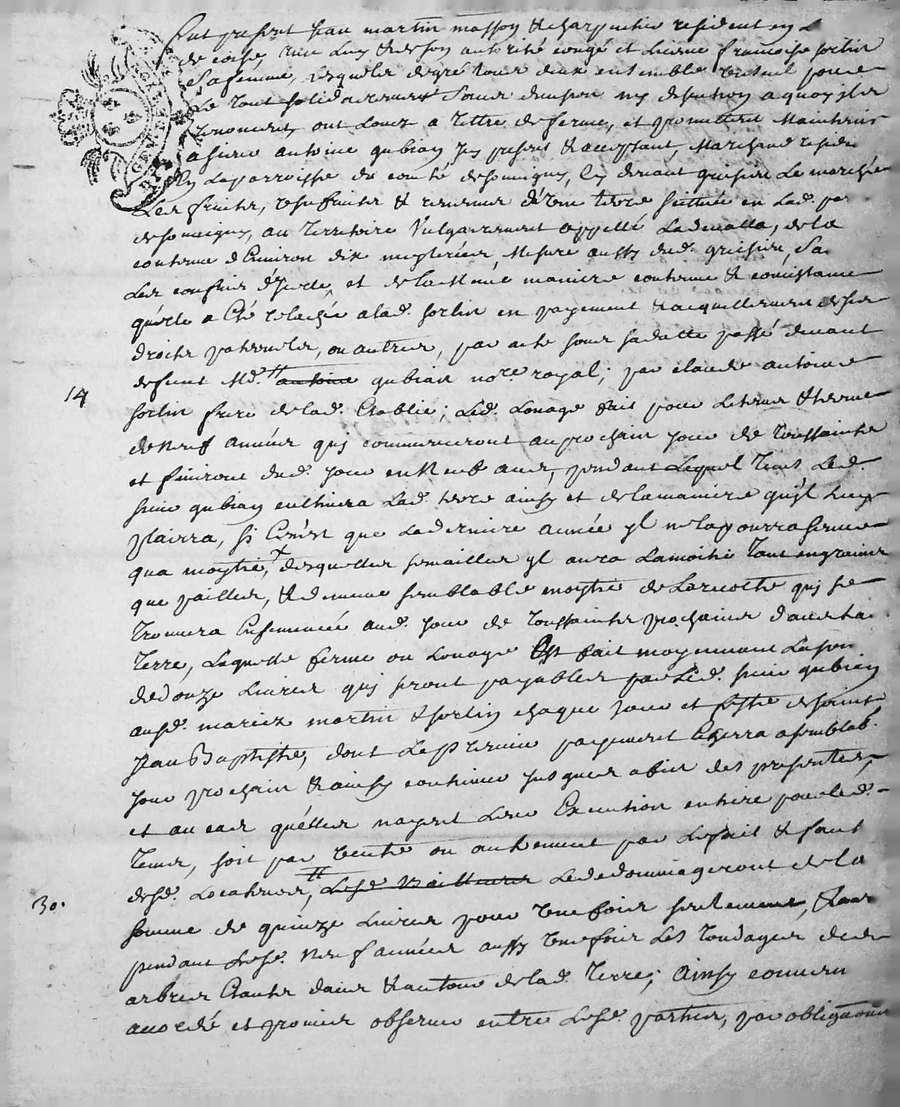 Fut present Jean martin masson & charpentier resident en l
de coise, avec luy & de son autorité congé et licence francoise sorlin
sa femme, lesquels de gré tous deux ensemble & seul pour
le tout solidairement sans division ny discution a quoy ils
renoncent ont louez a tittre de ferme, et promettent Maintenir
a sieur antoine gubian present & acceptant, Marchand resid
en la parroisse de
les fruits, & revenus d'une terre sittuée en lad. pe
au territoire Vulgairement appellé Ladeualla, de la
contenue d'Environ dix meyterées, Mesure aussy dud. sa
les confins d'ycelle, et de la Meme maniere contenue & consistance
quelle a Eté relachée a lad. sorlin en payement & acquittement de ses
droits paternels, ou autres, par acte sous sa datte passé devant
deffunt Me. antoine gubian nore. royal; par claude antoine
14
sorlin frere de lad. Etablie; led. louage fait pour le terme
de neuf années qui commenceront au prochain jour de toussaints
et finiront aud. jour en Neuf ans, pendant lequel tems led.
sieur gubian cultivera lad. terre ainsy et de la maniere qu'yl luy
plaira, si C'est que la derniere année yl ne la pourra semer
qua moytié, desquelles semailles yl aura la moitié tant en graines
que pailles, & de meme semblable moytié de la recolte qui se
trouvera Ensemencée aud. jour de toussaints prochaines dans la
terre, laquelle ferme ou louage Est fait moyennant la som
de douze Livres qui seront payables par led. sieur gubian
ausd. mariez martin & sorlin chaque jour et feste de saint
Jean Baptiste, dont le premier payement Echerra a semblab.
jour prochain & ainsy continuer jusques a fin des presentes,
et au cas quelles n'ayent leur Execution entiere pour led.
tems, soit par Vente ou autrement par le fait & faut
desd. locateurs, Lesd. Bailleurs le dedommageront de la
30.
somme de quinze Livres pour une fois seulement,
pendant lesd. neuf années aussy une fois les tondages des
arbres Etants dans & autour de lad. terre; Ainsy convenu
accordé et promis observer entre lesd. parties, par obligations